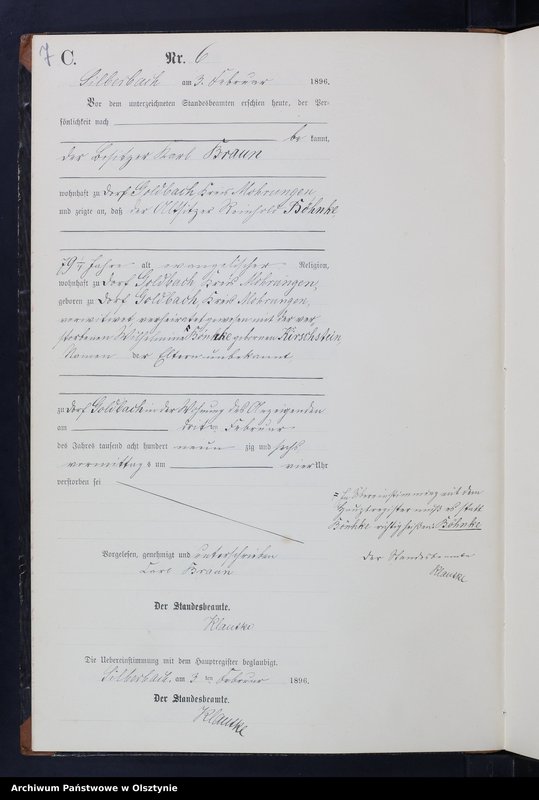 7 C. Nr. 6
Silberbach am 3. Februar 1896.
Vor dem unterzeichneten Standesbeamten erschien heute, der Per-
sönlichkeit nach
be kannt,
der Besitzer Karl Braun
wohnhaft zu Dorf Goldbach Kreis Mohrungen
und zeigte an, daß der Altsitzer Reinhold Böhnke
79 1/4 Jahre alt evangelischer Religion,
wohnhaft zu Dorf Goldbach Kreis Mohrungen,
geboren zu Dorf Goldbach, Kreis Mohrungen,
verwitwet, verheiratet gewesen mit der ver
storbenen Wilhelmine Bönhke geborenen Kirschstein
Namen der Eltern unbekannt
zu Dorf Goldbach in der Wohnung des Anzeigenden
am dritten Februar
des Jahres tausend acht hundert neun zig und sechs
vormittags um vier Uhr
verstorben sei
Vorgelesen, genehmigt und unterschrieben
Carl Braun
Der Standesbeamte.
Klautke
Die Uebereinstimmung mit dem Hauptregister beglaubigt.
Silberbach, am 3 ten Februar 1896.
Der Standesbeamte.
Klautke
= In Übereinstimmung mit dem
Hauptregister muß es statt
Bönhke richtig heißen: Böhnke
Der Standesbeamte
Klautke
Archiwum Państwowe w Olsztynie